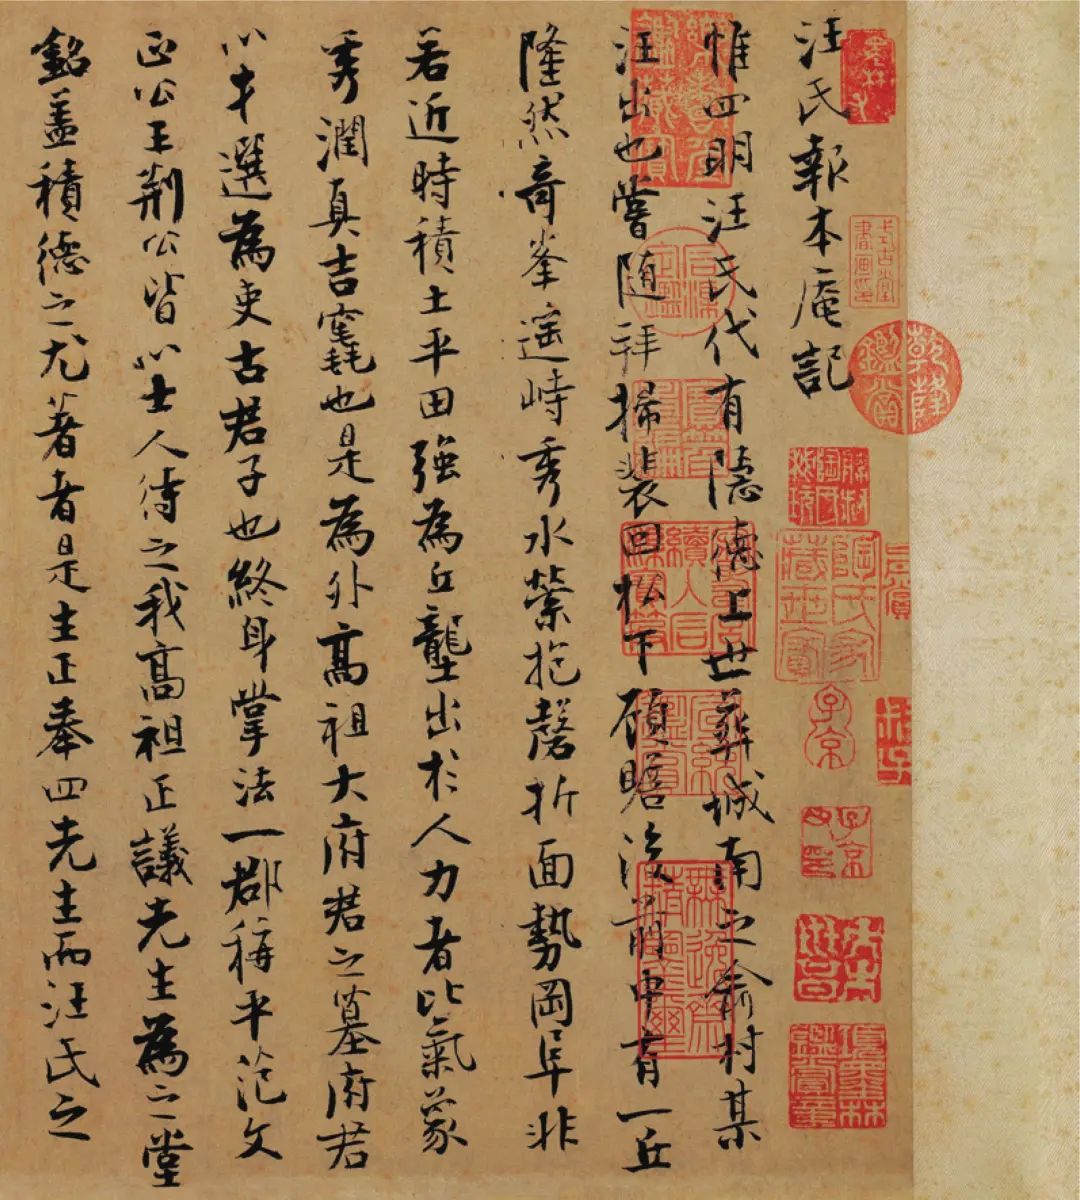 汪氏報本庵記
惟四明汪氏代有隱德上世葬城南之俞村某
汪出也嘗隨拜掃裴回松下顧瞻後前中有一丘
隆然奇峯遥峙秀水縈抱磬折面勢岡阜非
若近時積土平田強為丘壟出於人力者比氣象
秀潤真吉竁也是為外高祖大府君之墓府君
以才選為吏古君子也終身掌法一郡稱平范文
正公王荆公皆以士人待之我高祖正議先生為之堂
銘盖積德之尤著者是生正奉四先生而汪氏之
式古堂書畫印
乾隆鑑賞
陶氏家藏世寶
子京
項墨林鑑賞章
石渠定鑑